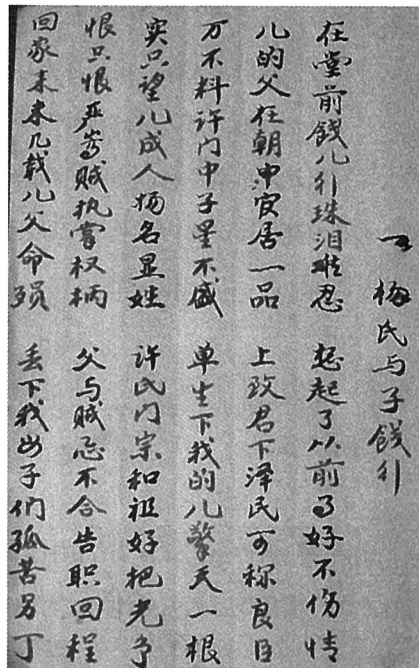 一 梅氏与子餞行
在堂前餞儿行珠泪难忍 想起了以前事好不伤情
儿的父在朝中官居一品 上致君下泽民可称良臣
万不料许门中子星不盛 单生下我的儿擎天一根
实只望儿成人扬名显姓 许氏门宗和祖好把光争
恨只恨严嵩贼执掌权柄 父与贼志不合告职回程
回家来未几载儿父命殒 丢下我母子们孤苦另丁